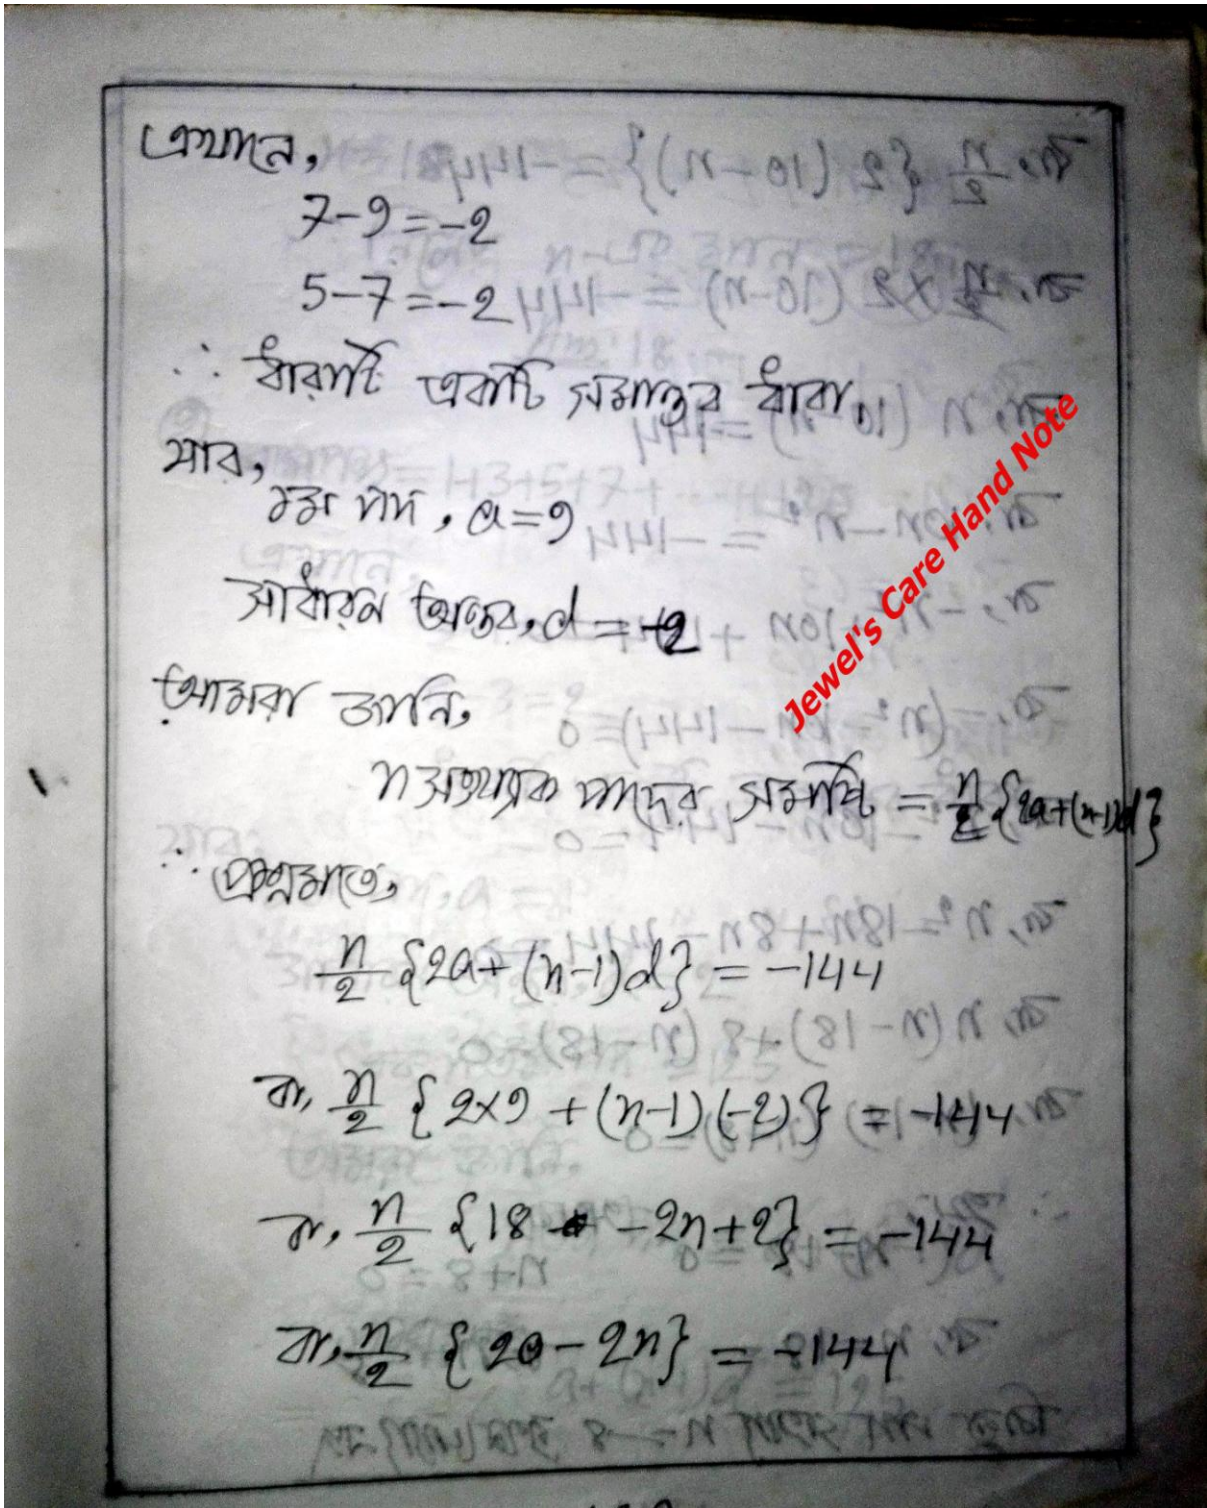 এখানে,
7-9=-2
5-7=-2
∴ ধারাটি একটি সমান্তর ধারা
যার,
১ম পদ, a=9
সাধারন অন্তর, d=-2
আমরা জানি,
n সংখ্যক পদের সমষ্টি = n/2 {2a+(n-1)d}
∴ প্রশ্নমতে,
n/2 {2a+(n-1)d} = -144
বা, n/2 {2×9 +(n-1)(-2)} = -144
বা, n/2 {18 -2n+2} = -144
বা, n/2 {20-2n} = -144
Jewel's Care Hand Note